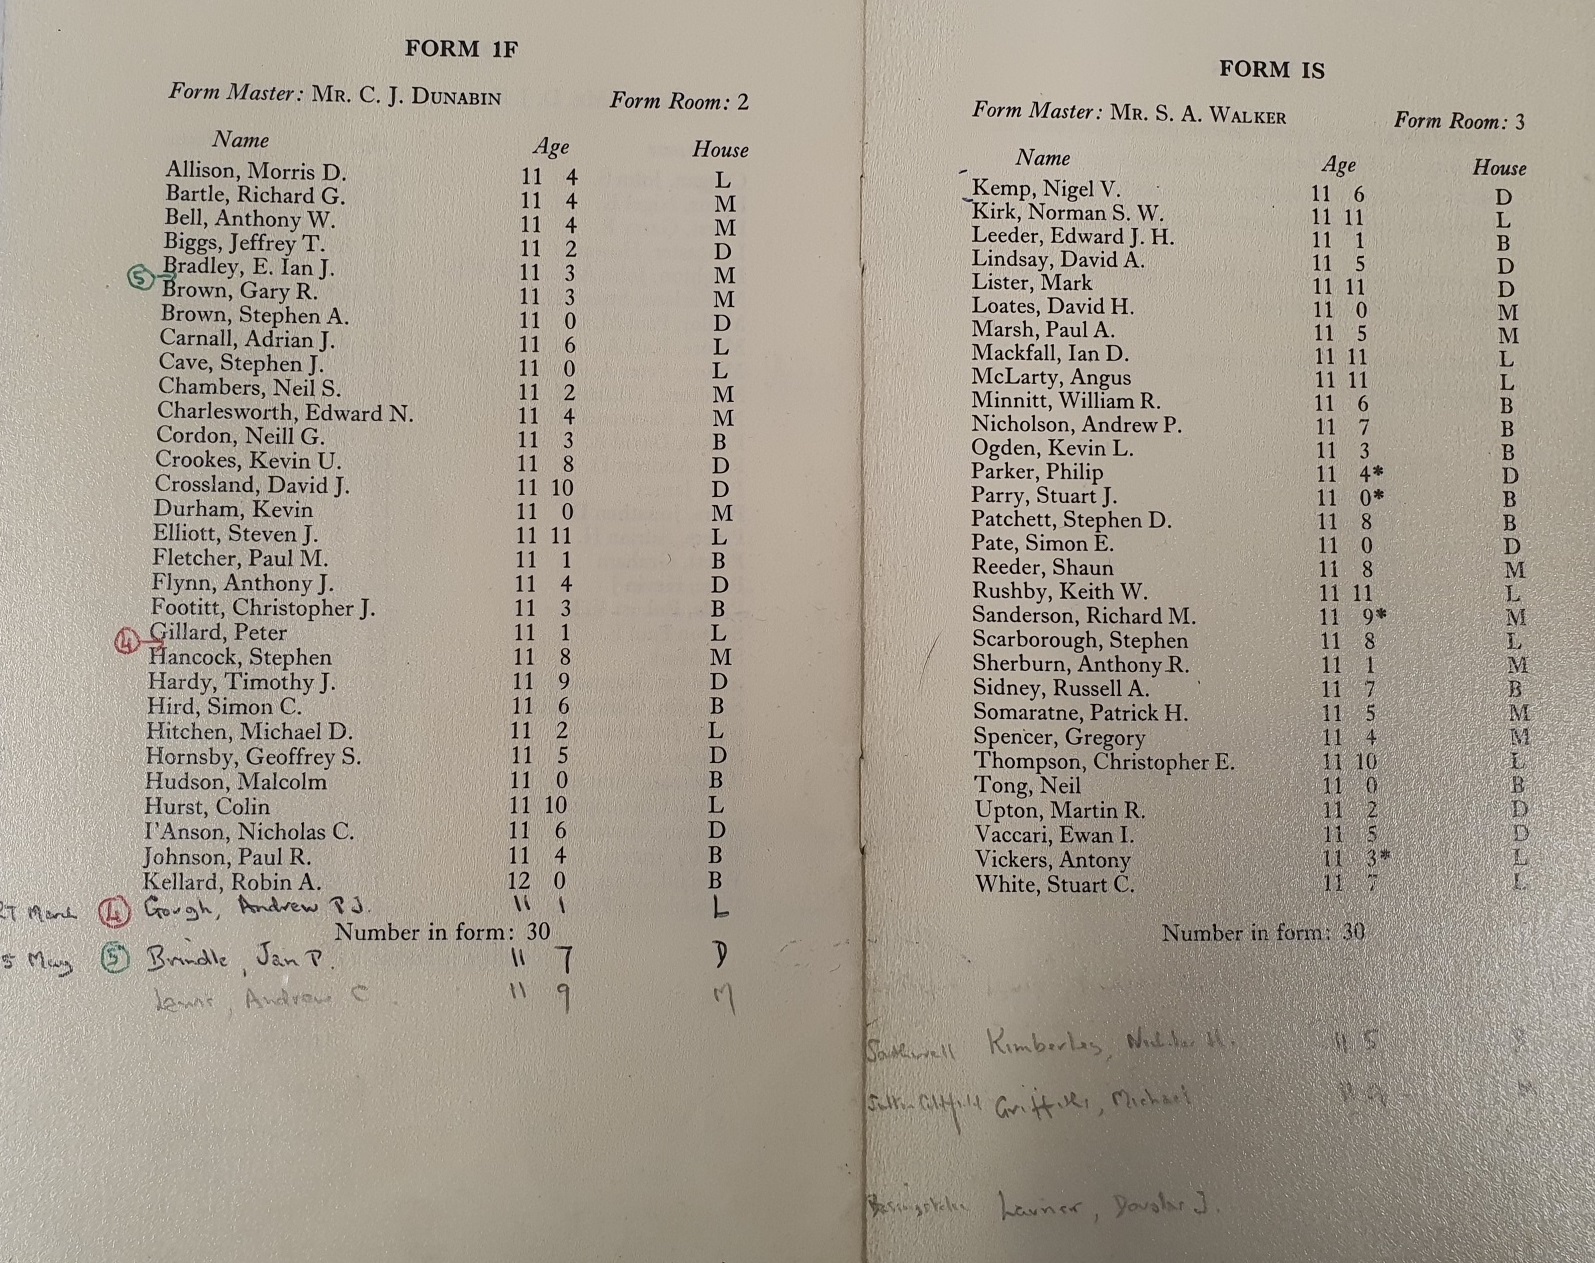 FORM 1F
Form Master: MR. C. J. DUNABIN Form Room: 2
Name Age House
Allison, Morris D. 11 4 L
Bartle, Richard G. 11 4 M
Bell, Anthony W. 11 4 M
Biggs, Jeffrey T. 11 2 D
5 Bradley, E. Ian J. 11 3 M
Brown, Gary R. 11 3 M
Brown, Stephen A. 11 0 D
Carnall, Adrian J. 11 6 L
Cave, Stephen J. 11 0 L
Chambers, Neil S. 11 2 M
Charlesworth, Edward N. 11 4 M
Cordon, Neill G. 11 3 B
Crookes, Kevin U. 11 8 D
Crossland, David J. 11 10 D
Durham, Kevin 11 0 M
Elliott, Steven J. 11 11 L
Fletcher, Paul M. 11 1 B
Flynn, Anthony J. 11 4 D
Footitt, Christopher J. 11 3 B
4 Gillard, Peter 11 1 L
Hancock, Stephen 11 8 M
Hardy, Timothy J. 11 9 D
Hird, Simon C. 11 6 B
Hitchen, Michael D. 11 2 L
Hornsby, Geoffrey S. 11 5 D
Hudson, Malcolm 11 0 B
Hurst, Colin 11 10 L
I'Anson, Nicholas C. 11 6 D
Johnson, Paul R. 11 4 B
Kellard, Robin A. 12 0 B
27 March 4 Gough, Andrew P.J. 11 1 L
Number in form: 30
5 May 5 Brindle, Ian P. 11 7 D
Lewis, Andrew C. 11 9 M
FORM IS
Form Master: MR. S. A. WALKER Form Room: 3
Name Age House
Kemp, Nigel V. 11 6 D
Kirk, Norman S. W. 11 11 L
Leeder, Edward J. H. 11 1 B
Lindsay, David A. 11 5 D
Lister, Mark 11 11 D
Loates, David H. 11 0 M
Marsh, Paul A. 11 5 M
Mackfall, Ian D. 11 11 L
McLarty, Angus 11 11 L
Minnitt, William R. 11 6 B
Nicholson, Andrew P. 11 7 B
Ogden, Kevin L. 11 3 B
Parker, Philip 11 4* D
Parry, Stuart J. 11 0* B
Patchett, Stephen D. 11 8 B
Pate, Simon E. 11 0 D
Reeder, Shaun 11 8 M
Rushby, Keith W. 11 11 L
Sanderson, Richard M. 11 9* M
Scarborough, Stephen 11 8 L
Sherburn, Anthony R. 11 1 M
Sidney, Russell A. 11 7 B
Somaratne, Patrick H. 11 5 M
Spencer, Gregory 11 4 M
Thompson, Christopher E. 11 10 L
Tong, Neil 11 0 B
Upton, Martin R. 11 2 D
Vaccari, Ewan I. 11 5 D
Vickers, Antony 11 3* L
White, Stuart C. 11 7 L
Number in form: 30
Southwell Kimberley, H. 11 5
Sutton Coldfield Griffiths, Michael 11 M
Basingstoke Larner, Douglas J.